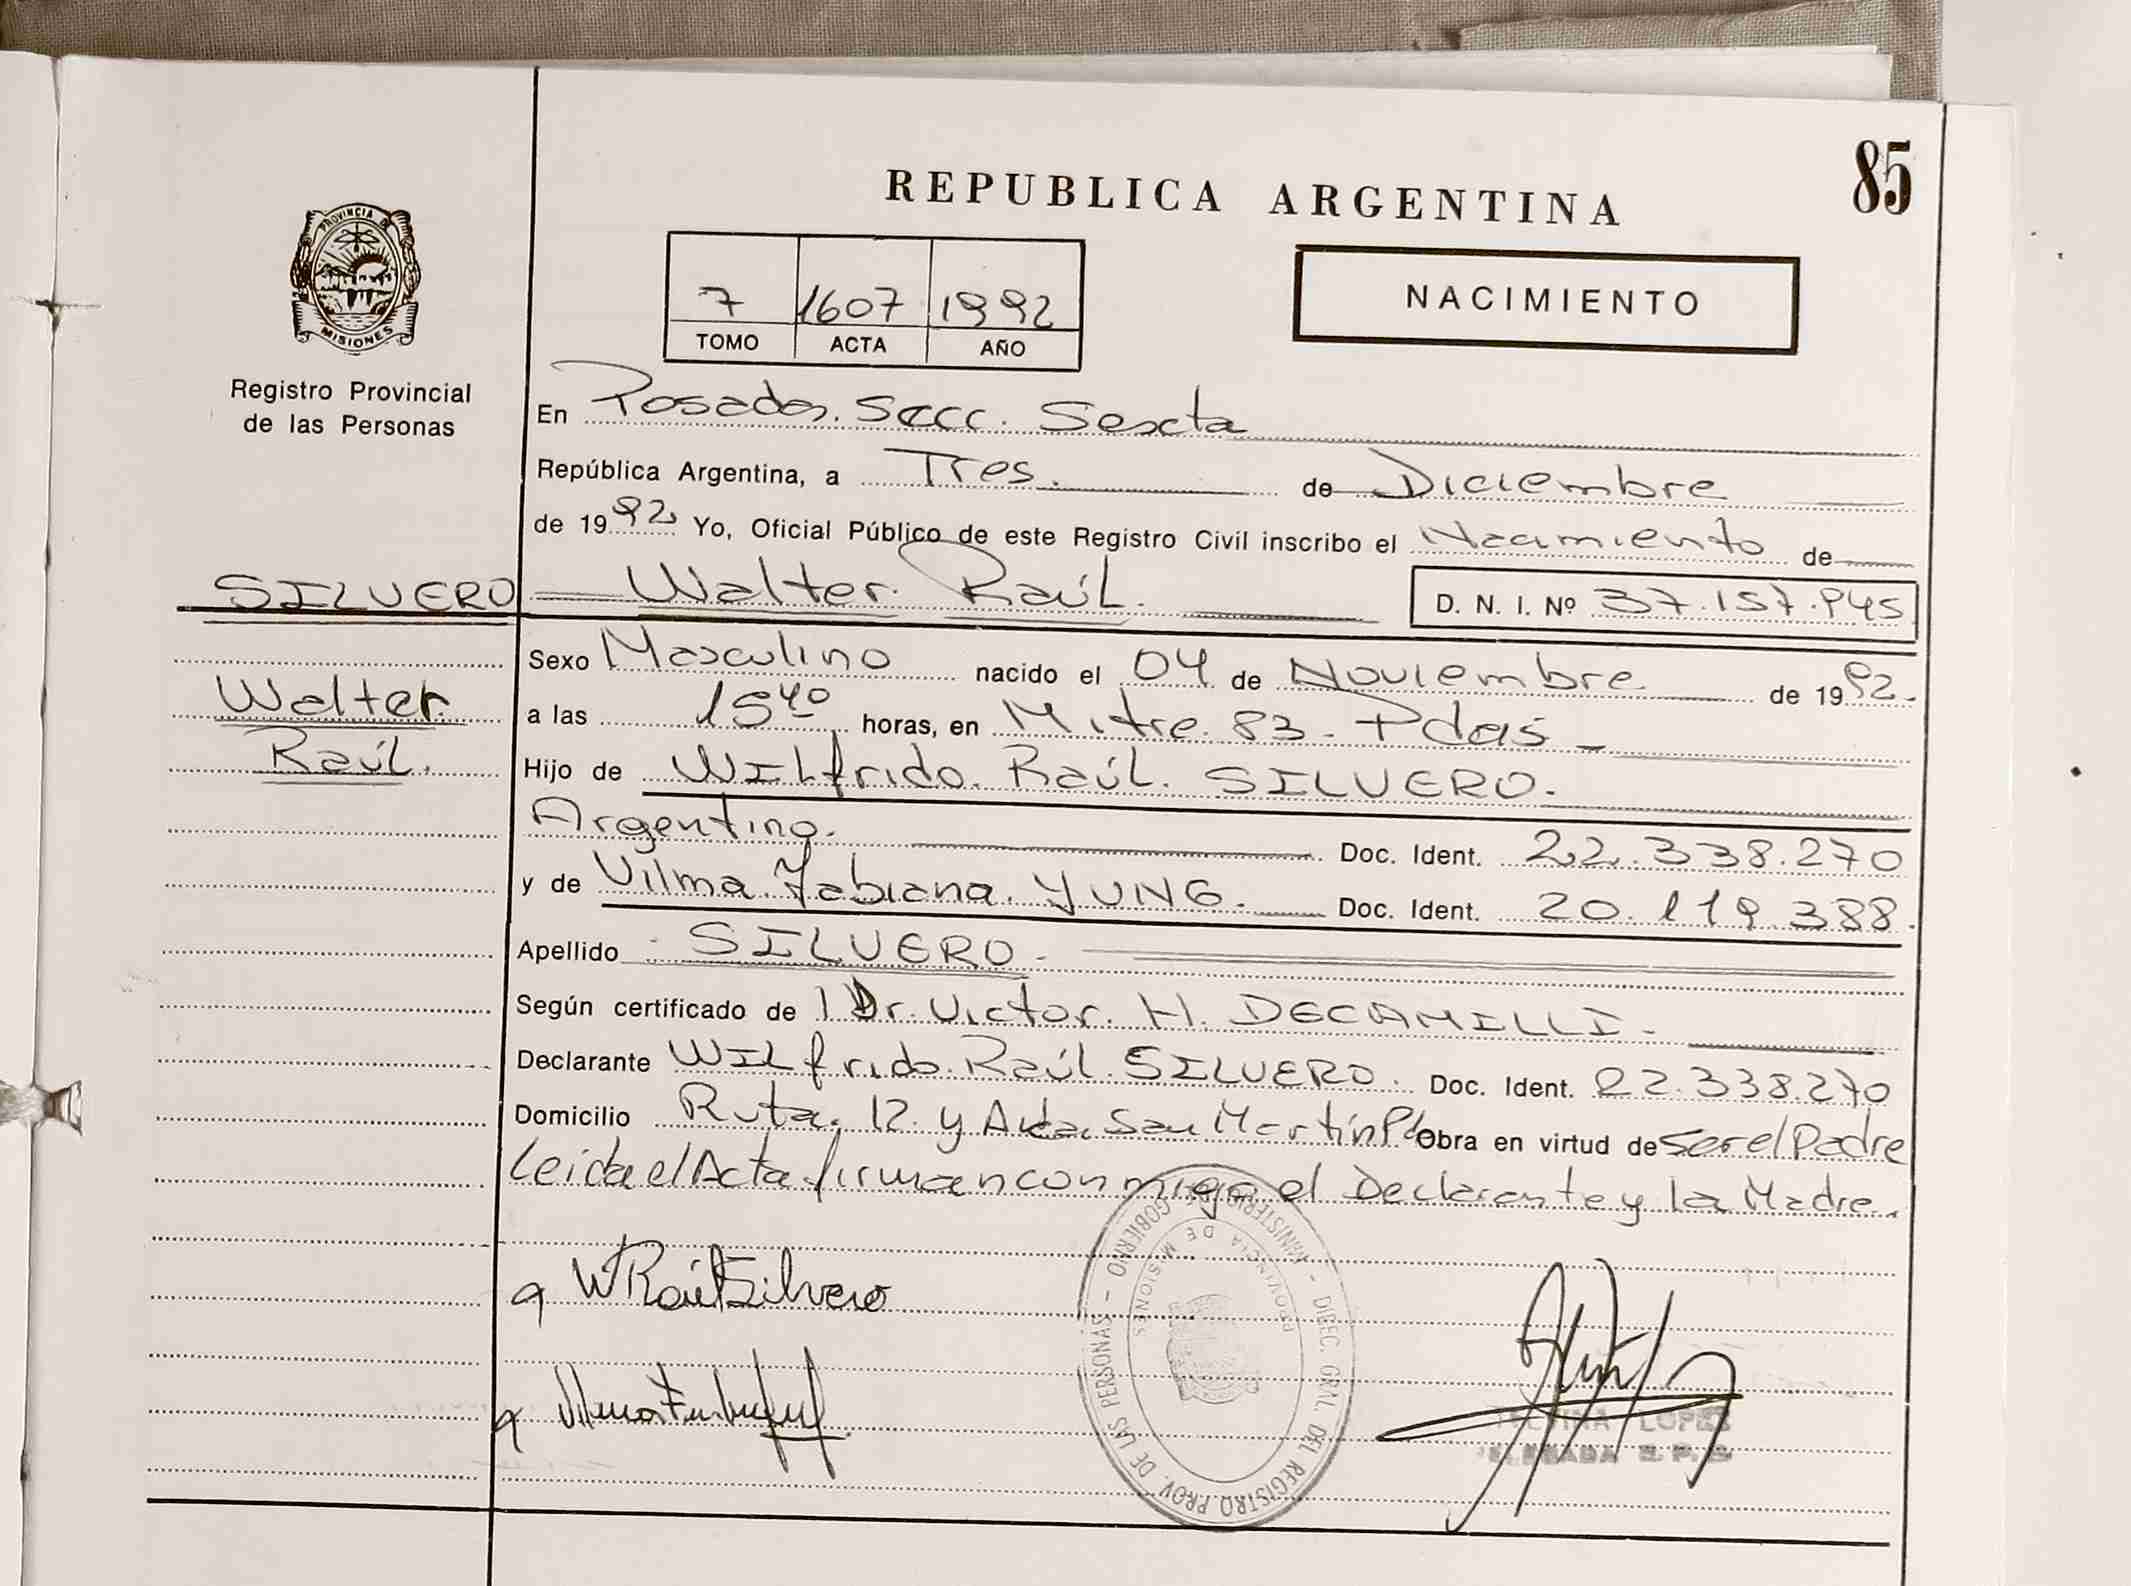 85
REPUBLICA ARGENTINA
PROVINCIA DE
MISIONES
Registro Provincial
de las Personas
7 1607 1992
TOMO ACTA AÑO
NACIMIENTO
En Posadas. Secc. Sexta
República Argentina, a Tres. de Diciembre
de 1992 Yo, Oficial Público de este Registro Civil inscribo el Nacimiento de
SILVERO Walter. Raúl. D. N. I. Nº 37.157.945
Sexo Masculino nacido el 04 de Noviembre de 1992.
Walter. a las 15 40 horas, en Mitre. 83 - Pdas -
Raúl. Hijo de Wilfrido. Raúl. SILVERO.
Argentino. Doc. Ident. 22.338.270
y de Vilma. Fabiana. YUNG. Doc. Ident. 20.119.388.
Apellido - SILVERO -
Según certificado de l Dr. Victor. H. DECAMILLI.
Declarante Wilfrido. Raúl. SILVERO. Doc. Ident. 22.338.270
Domicilio Ruta. 12. y Avda. San Martín Obra en virtud de Ser el Padre
Leida el Acta firman conmigo el Declarante y la Madre.
W Raúl Silvero
MINISTERIO DE GOBIERNO - DIREC. GRAL. DEL REGISTRO PROV. DE LAS PERSONAS -
PROVINCIA DE MISIONES
LOPES